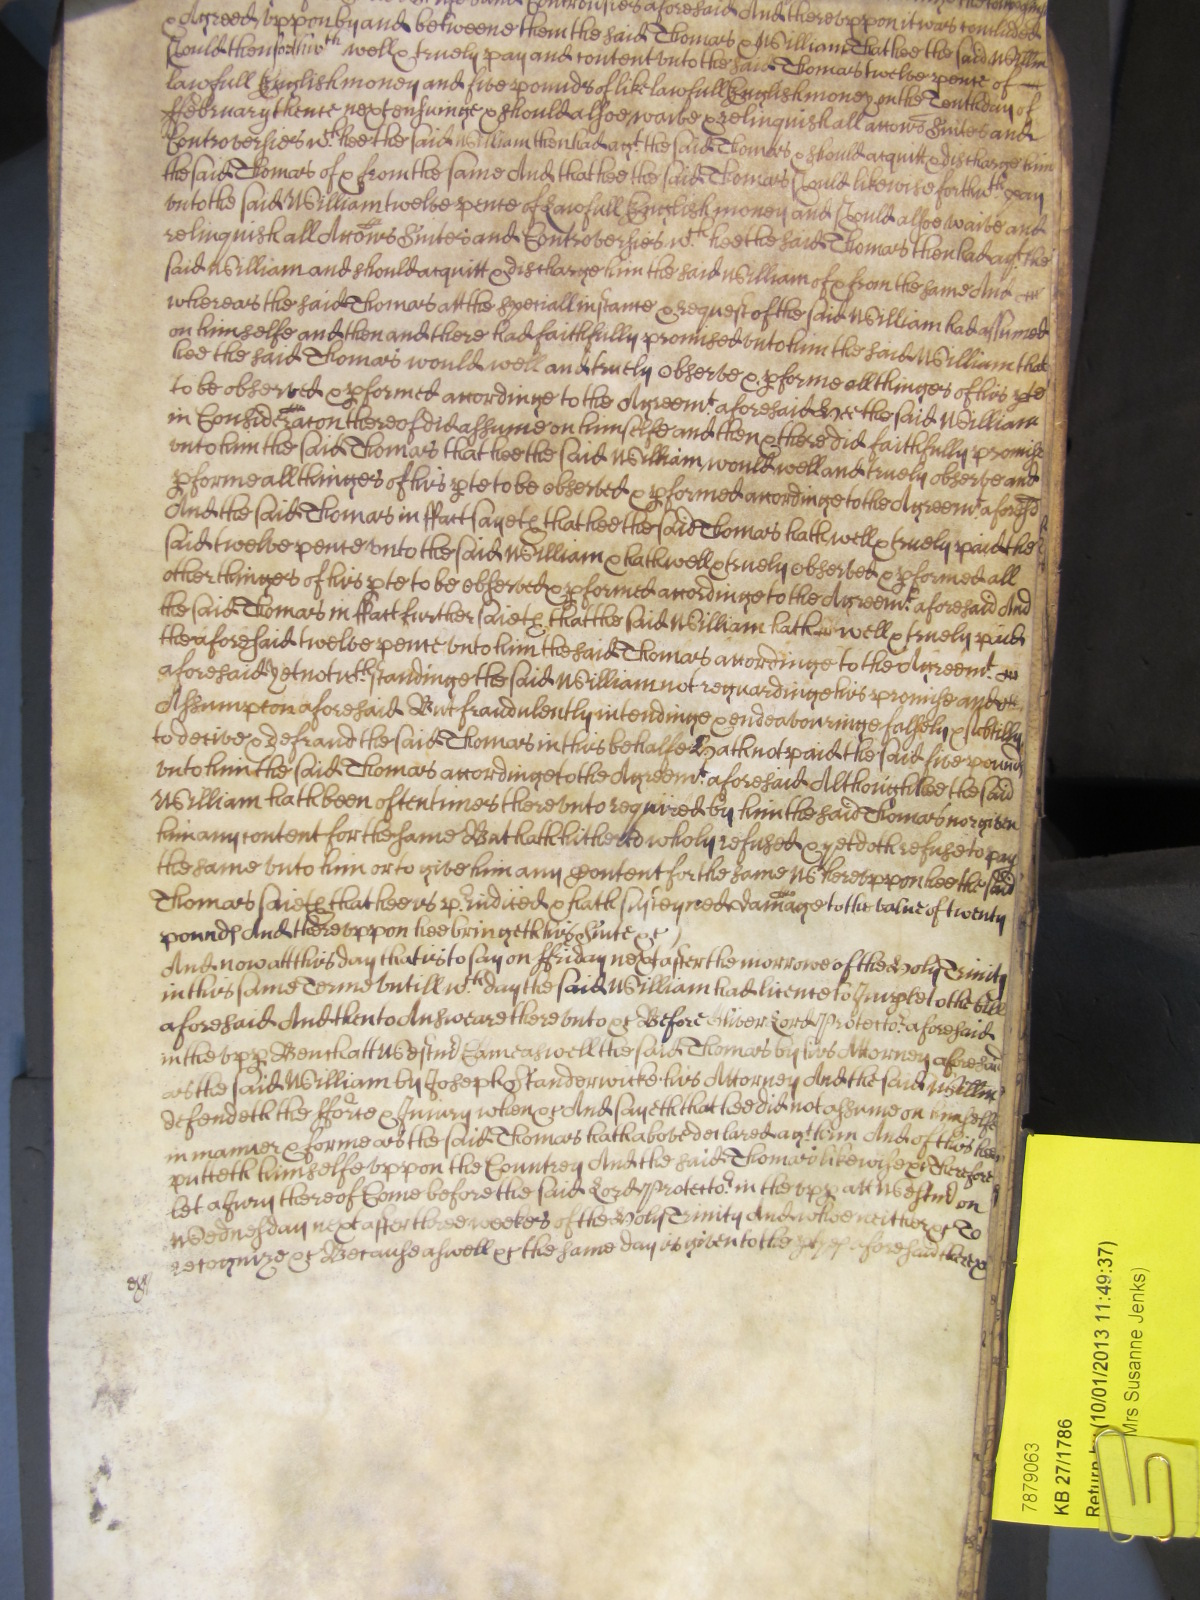 Controversies aforesaid And therevppon it was concluded
& Agreed vppon by and betweene them the said Thomas & William That hee the said Willm
should then forthwth well & truely pay and content vnto the said Thomas twelve pence of
lawfull English money and five pounds of like lawfull English money on the Tenth day of
ffebruary thence next ensuinge & should alsoe waive & relinquish all accons Suites and
Controversies wch hee the said William then had agt the said Thomas & should acquitt & discharge him
the said Thomas of & from the same And that hee the said Thomas should likewise forthwth pay
vnto the said William twelve pence of lawfull English money and should alsoe waive and
relinquish all Accons Suites and Controversies wch hee the said Thomas then had agt the
said William and should acquitt & discharge him the said William of & from the same And
whereas the said Thomas att the speciall instance & request of the said William had assumed
on himselfe and then and there had faithfully promised vnto him the said William that
hee the said Thomas would well and truely observe & pforme all thinges of his pte
to be observed & pformed accordinge to the Agreemt aforesaid Hee the said William
in Consideracon thereof did assume on himselfe and then & there did faithfully promise
vnto him the said Thomas that hee the said William would well and truely observe and
pforme all thinges of his pte to be observed & pformed accordinge to the Agreemt aforesd
And the said Thomas in ffact sayeth that hee the said Thomas hath well & truely paid the
said twelve pence vnto the said William & hath well & truely observed & pformed all
other thinges of his pte to be observed & pformed accordinge to the Agreemt aforesaid And
the said Thomas in ffact further saieth that the said William hath well & truely paid
the aforesaid twelve pence vnto him the said Thomas accordinge to the Agreemt
aforesaid yet notwthstandinge the said William not reguardinge his promise and
Assumpton aforesaid But fraudulently intendinge & endeavouringe falsely & subtilly
to deceive & defraud the said Thomas in this behalfe Hath not paid the said five pounds
vnto him the said Thomas accordinge to the Agreemt aforesaid Although hee the said
William hath been oftentimes therevnto required by him the said Thomas nor given
him any content for the same But hath hitherto wholy refused & yet doth refuse to pay
the same vnto him or to give him any Content for the same Wherevppon hee the said
Thomas saieth that hee is p'iudiced & hath susteyned damage to the value of twenty
pounds And therevppon hee bringeth his Suite &c
And now att this day that is to say on ffriday next after the morrowe of the Holy Trinity
in this same Terme vntill wch day the said William had licence to Imparle to the bill
aforesaid And then to Answeare therevnto &c Before Oliver Lord Protector aforesaid
in the vpp Bench att Westmr Came aswell the said Thomas by his Attorney aforesaid
as the said William by Joseph Standerwicke his Attorney And the said Willm
defendeth the fforce & Injury when &c And sayeth that hee did not assume on himselfe
in manner & forme as the said Thomas hath above declared agt him And of this hee
putteth himselfe vppon the Countrey And the said Thomas likewise &c Therefore
let a Jury thereof Come before the said Lord Protector in the vpp att Westmr on
Wednesday next after three weekes of the Holy Trinity And who neither &c To
recognize &c Because aswell &c the same day is given to the aforesaid there &c
7879063
KB 27/1786
Return by (10/01/2013 11:49:37)
Mrs Susanne Jenks)